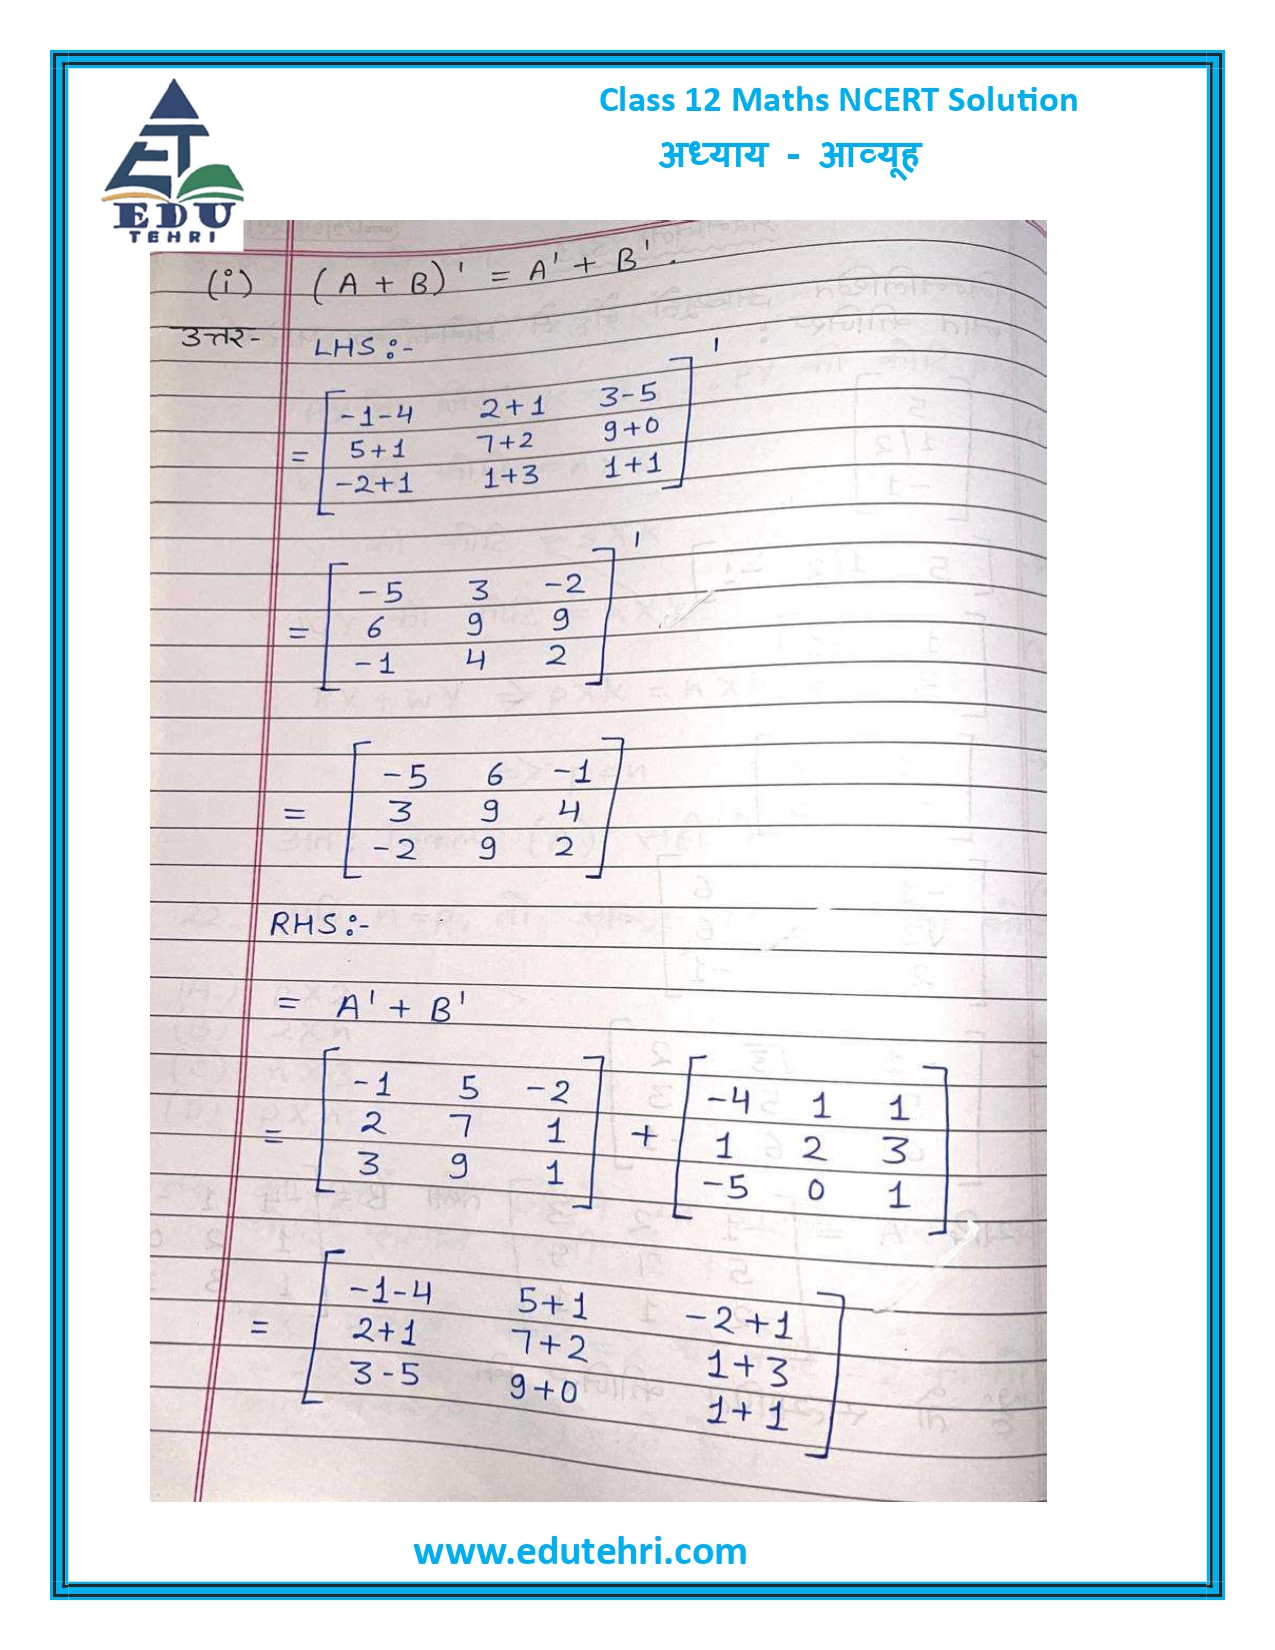 Class 12 Maths NCERT Solution
अध्याय - आव्यूह
EDU
TEHRI
(i) (A + B)' = A' + B'.
उत्तर- LHS:-
= [ -1-4 2+1 3-5
5+1 7+2 9+0
-2+1 1+3 1+1 ]'
= [ -5 3 -2
6 9 9
-1 4 2 ]'
= [ -5 6 -1
3 9 4
-2 9 2 ]
RHS:-
= A' + B'
= [ -1 5 -2 ] + [ -4 1 1 ]
[ 2 7 1 ] [ 1 2 3 ]
[ 3 9 1 ] [ -5 0 1 ]
= [ -1-4 5+1 -2+1
2+1 7+2 1+3
3-5 9+0 1+1 ]
www.edutehri.com